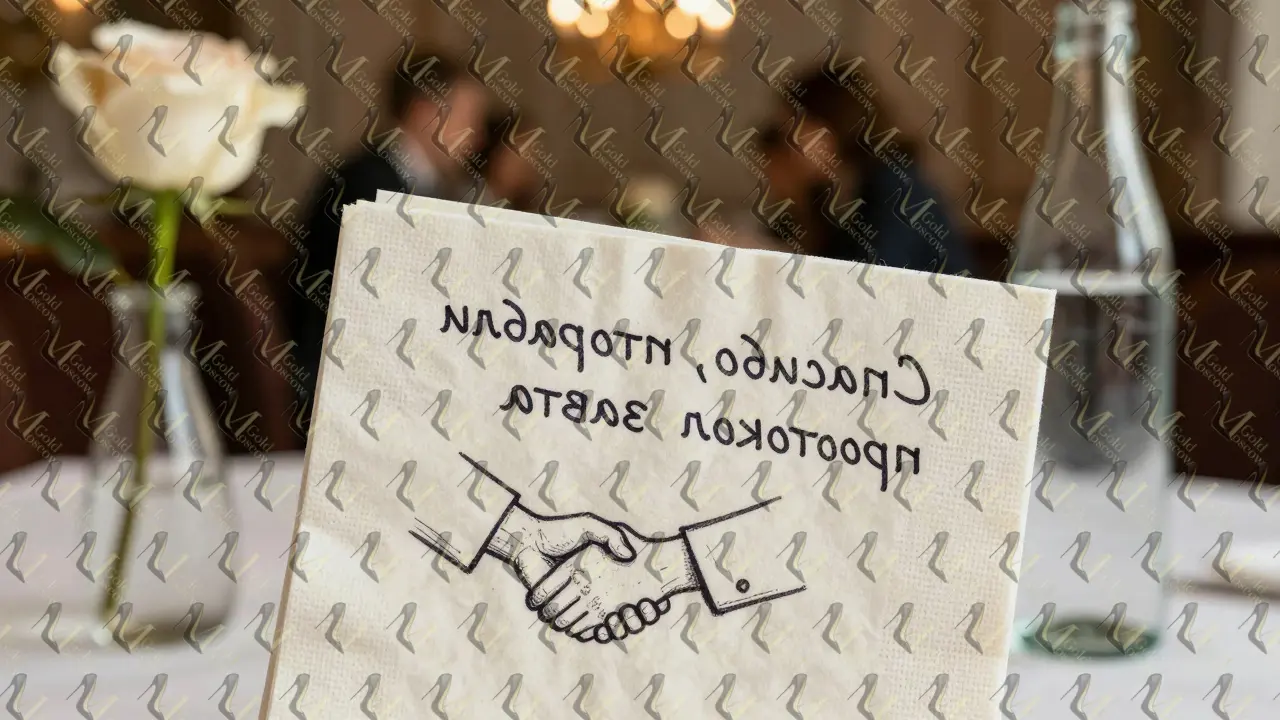 Спасибо, пторабли
проотокол завта
Gold
Moscow